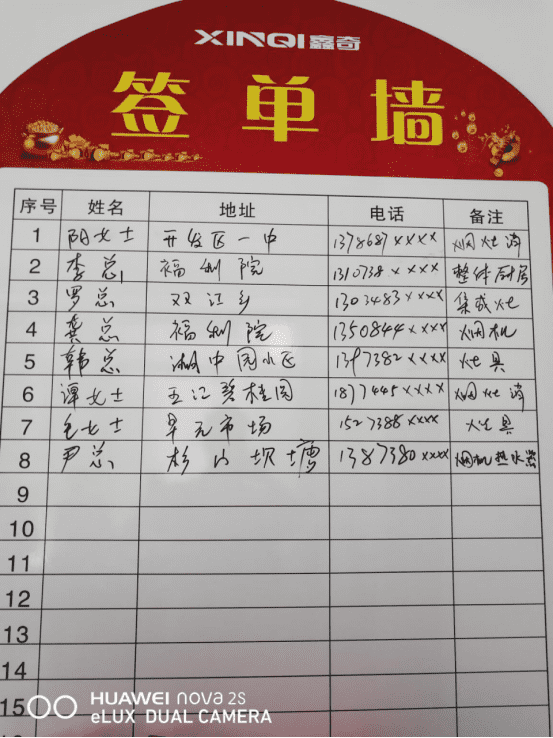 XINQI鑫奇
签单墙
序号 姓名 地址 电话 备注
1 阳女士 开发区一中 1378687xxxx 烟灶消
2 李总 福利院 1310738xxxx 整体厨房
3 罗总 双江乡 1303483xxxx 集成灶
4 龚总 福利院 1350844xxxx 烟机
5 韩总 湖中园小区 1397382xxxx 灶具
6 谭女士 五江碧桂园 1877445xxxx 烟灶消
7 毛女士 市场 1527388xxxx 灶具
8 尹总 杉山坝塘 1387380xxxx 烟机热水器
9
10
11
12
13
14
15
HUAWEI nova 2S
eLUX DUAL CAMERA